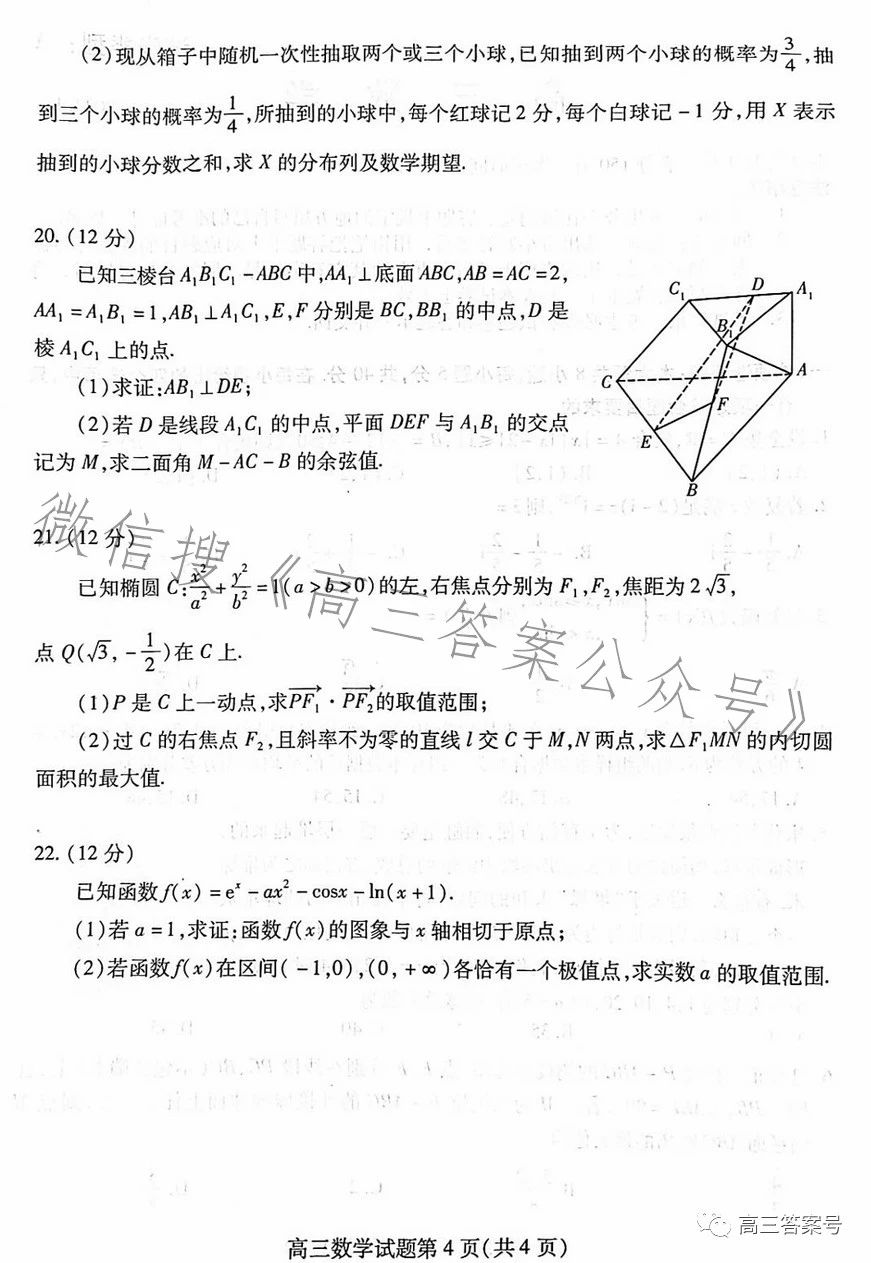 (2)现从箱子中随机一次性抽取两个或三个小球,已知抽到两个小球的概率为3/4,抽
到三个小球的概率为1/4,所抽到的小球中,每个红球记2分,每个白球记-1分,用X表示
抽到的小球分数之和,求X的分布列及数学期望.
20.(12分)
已知三棱台A₁B₁C₁-ABC中,AA₁⊥底面ABC,AB=AC=2,
AA₁=A₁B₁=1,AB₁⊥A₁C₁,E,F分别是BC,BB₁的中点,D是
棱A₁C₁上的点.
(1)求证:AB₁⊥DE;
(2)若D是线段A₁C₁的中点,平面DEF与A₁B₁的交点
记为M,求二面角M-AC-B的余弦值.
C₁
D
A₁
B₁
C
A
F
E
B
21.(12分)
已知椭圆C:x²/a²+y²/b²=1(a>b>0)的左,右焦点分别为F₁,F₂,焦距为2√3,
点Q(√3,-1/2)在C上.
(1)P是C上一动点,求PF₁·PF₂的取值范围;
(2)过C的右焦点F₂,且斜率不为零的直线l交C于M,N两点,求△F₁MN的内切圆
面积的最大值.
22.(12分)
已知函数f(x)=eˣ-ax²-cosx-ln(x+1).
(1)若a=1,求证:函数f(x)的图象与x轴相切于原点;
(2)若函数f(x)在区间(-1,0),(0,+∞)各恰有一个极值点,求实数a的取值范围.
微信搜《高三答案公众号》
高三答案号
高三数学试题第4页(共4页)